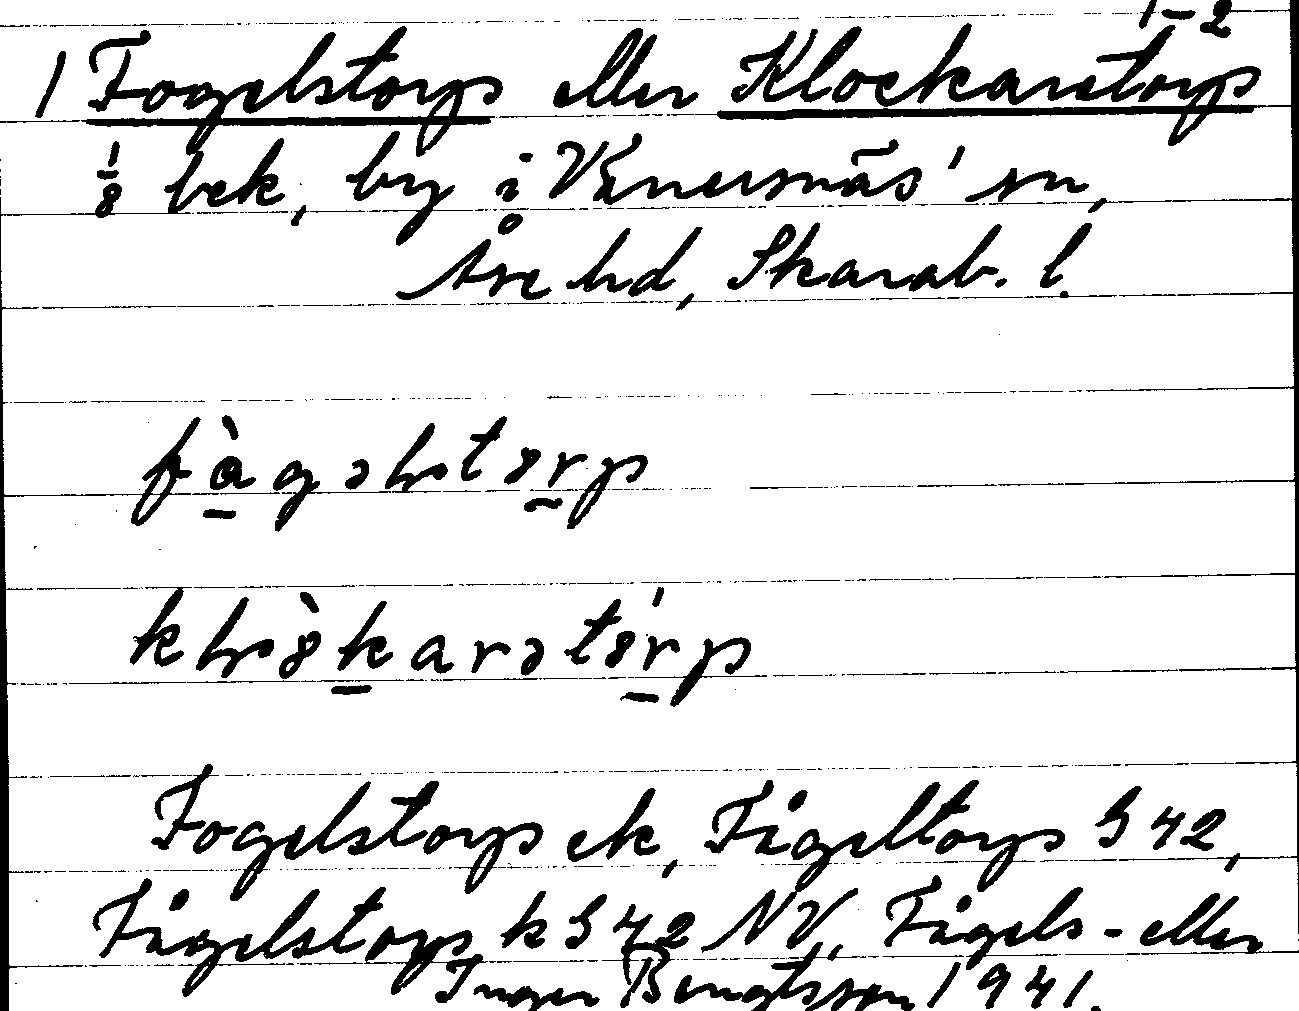 1-2
1 Fogelstorp eller Klockaretorp
1/8 bek, by i Vänersnäs' sn,
Åse hd, Skarab. l.
Fogelstorp ek, Fågeltorp G 42,
Fågelstorp k G 42 NV, Fågels- eller
Inger Bengtsson 1941.